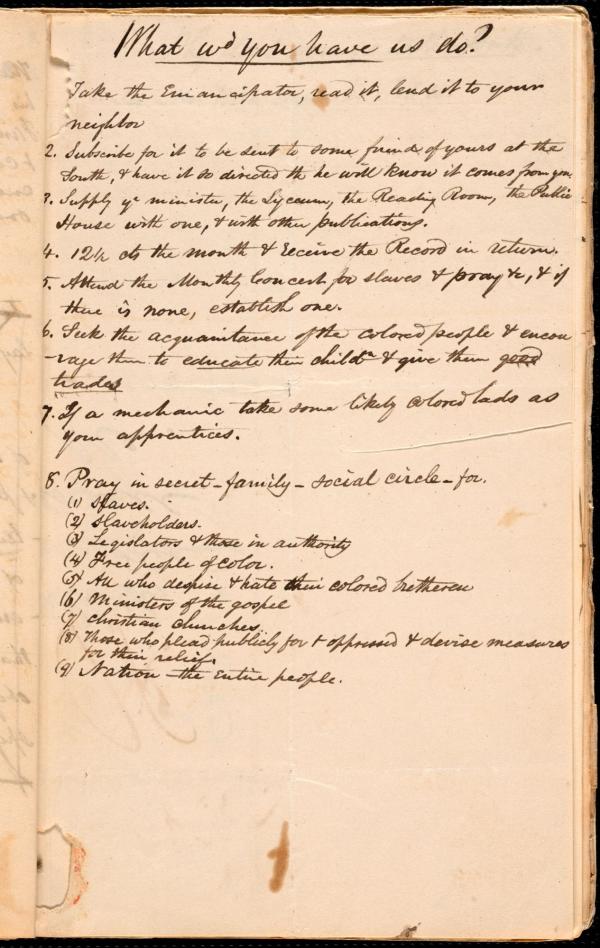 What wd you have us do?
Take the Emancipator, read it, lend it to your
neighbor
2. Subscribe for it to be sent to some friend of yours at the
South, & have it so directed th he will know it comes from you.
3. Supply yr minister, the Lyceum, the Reading Room, the Public
House with one, & with other publications.
4. 12½ cts the month & receive the Record in return.
5. Attend the Monthly Concert for slaves & pray &c, & if
there is none, establish one.
6. Seek the acquaintance of the colored people & encou
-rage them to educate their childn & give them good
trades
7. If a mechanic take some likely colored lads as
your apprentices.
8. Pray in secret - family - social circle - for.
(1) Slaves.
(2) Slaveholders.
(3) Legislators & those in authority
(4) Free people of color.
(5) All who despise & hate their colored bretheren
(6) Ministers of the gospel
(7) Christian churches.
(8) Those who plead publicly for t oppressed & devise measures
for their relief.
(9) Nation - the entire people.